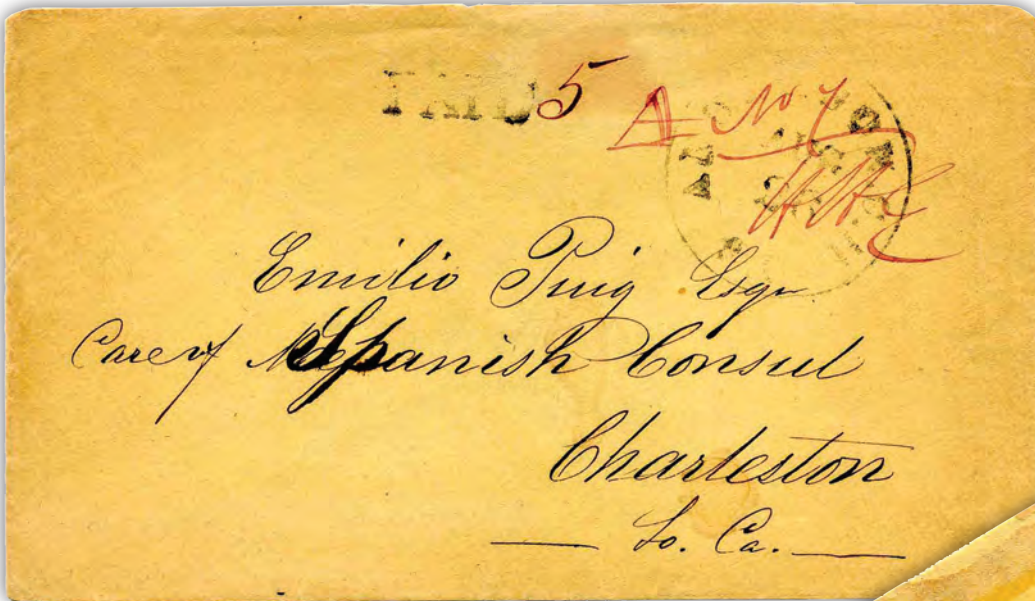 PAID 5
A No 1
Emilio Puig Esqr
Care of Spanish Consul
Charleston
So. Ca.